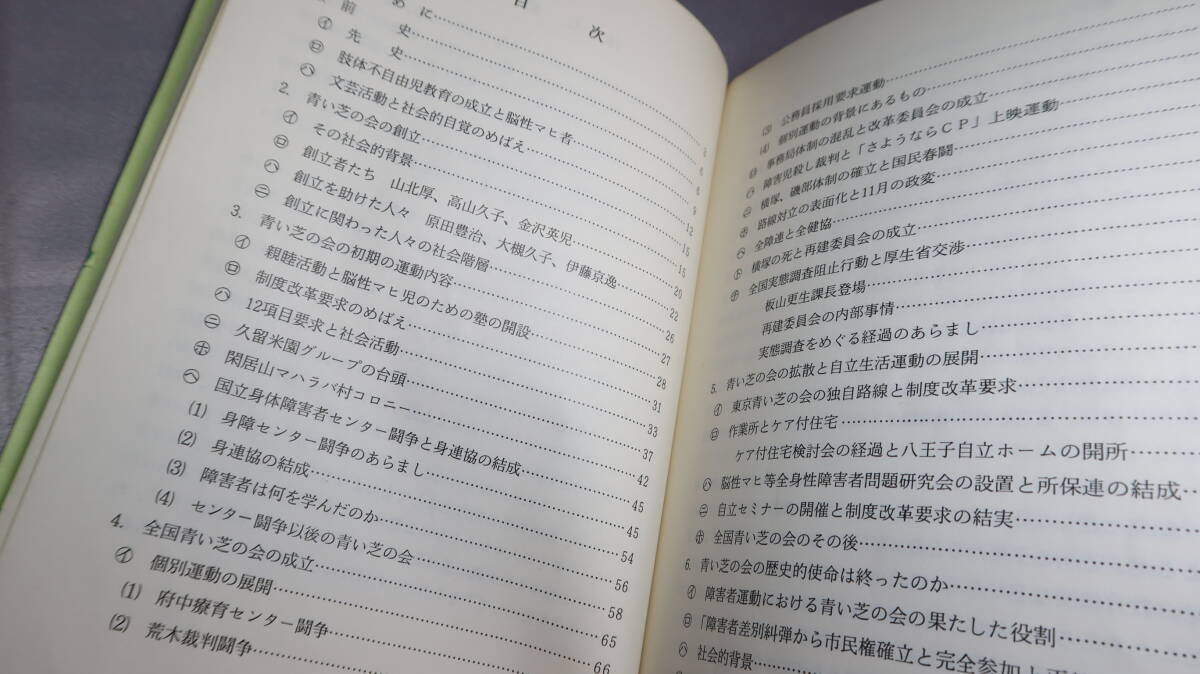 目　次
めに
前　史
㋑ 先　史
㋺ 肢体不自由児教育の成立と脳性マヒ者
㋩ 文芸活動と社会的自覚のめばえ……9
2. 青い芝の会の創立……12
㋑ その社会的背景……15
㋺ 創立者たち　山北厚、高山久子、金沢英児……15
㋩ 創立を助けた人々　原田豊治、大槻久子、伊藤京逸……20
㋥ 創立に関わった人々の社会階層……22
3. 青い芝の会の初期の運動内容……26
㋑ 親睦活動と脳性マヒ児のための塾の開設……27
㋺ 制度改革要求のめばえ……28
㋩ 12項目要求と社会活動……31
㋥ 久留米園グループの台頭……33
㋭ 閑居山マハラバ村コロニー……37
㋬ 国立身体障害者センター闘争と身連協の結成……42
(1) 身障センター闘争のあらまし……45
(2) 身連協の結成……45
(3) 障害者は何を学んだのか……54
(4) センター闘争以後の青い芝の会……56
4. 全国青い芝の会の成立……58
㋑ 個別運動の展開……65
(1) 府中療育センター闘争……66
(2) 荒木裁判闘争……
(3) 公務員採用要求運動……
(4) 個別運動の背景にあるもの……
㋺ 事務局体制の混乱と改革委員会の成立……
㋩ 障害児殺し裁判と「さようならCP」上映運動
㋥ 横塚、磯部体制の確立と国民春闘……
㋭ 路線対立の表面化と11月の政変……
㋬ 全障連と全健協……
㋣ 横塚の死と再建委員会の成立……
㋠ 全国実態調査阻止行動と厚生省交渉……
板山更生課長登場……
再建委員会の内部事情……
実態調査をめぐる経過のあらまし……
5. 青い芝の会の拡散と自立生活運動の展開……
㋑ 東京青い芝の会の独自路線と制度改革要求……
㋺ 作業所とケア付住宅……
ケア付住宅検討会の経過と八王子自立ホームの開所……
㋩ 脳性マヒ等全身性障害者問題研究会の設置と所保連の結成……
㋥ 自立セミナーの開催と制度改革要求の結実……
㋭ 全国青い芝の会のその後……
6. 青い芝の会の歴史的使命は終ったのか……
㋑ 障害者運動における青い芝の会の果たした役割……
㋺ 「障害者差別糾弾から市民権確立と完全参加と
㋩ 社会的背景……